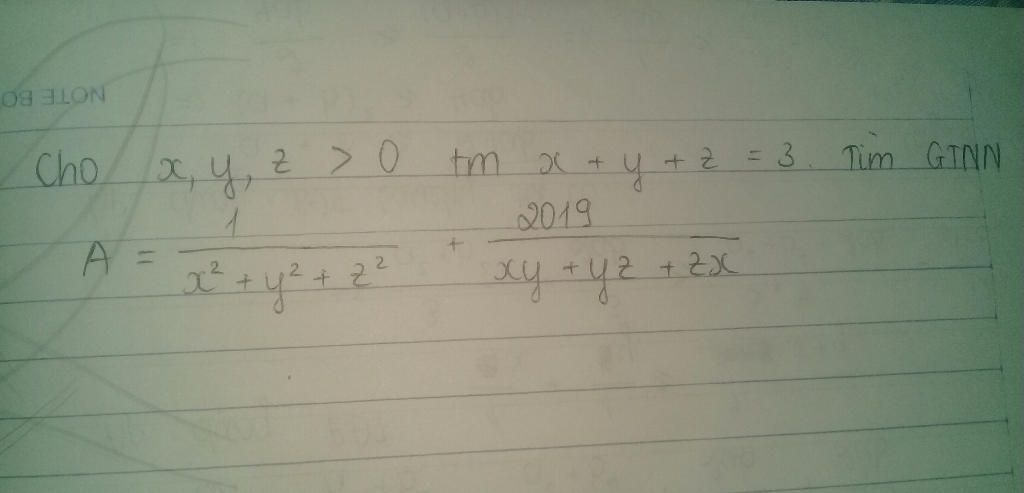 NOTE BO
Cho x, y, z > 0 tm x + y + z = 3. Tìm GTNN
A = \frac{1}{x^2 + y^2 + z^2} + \frac{2019}{xy + yz + zx}